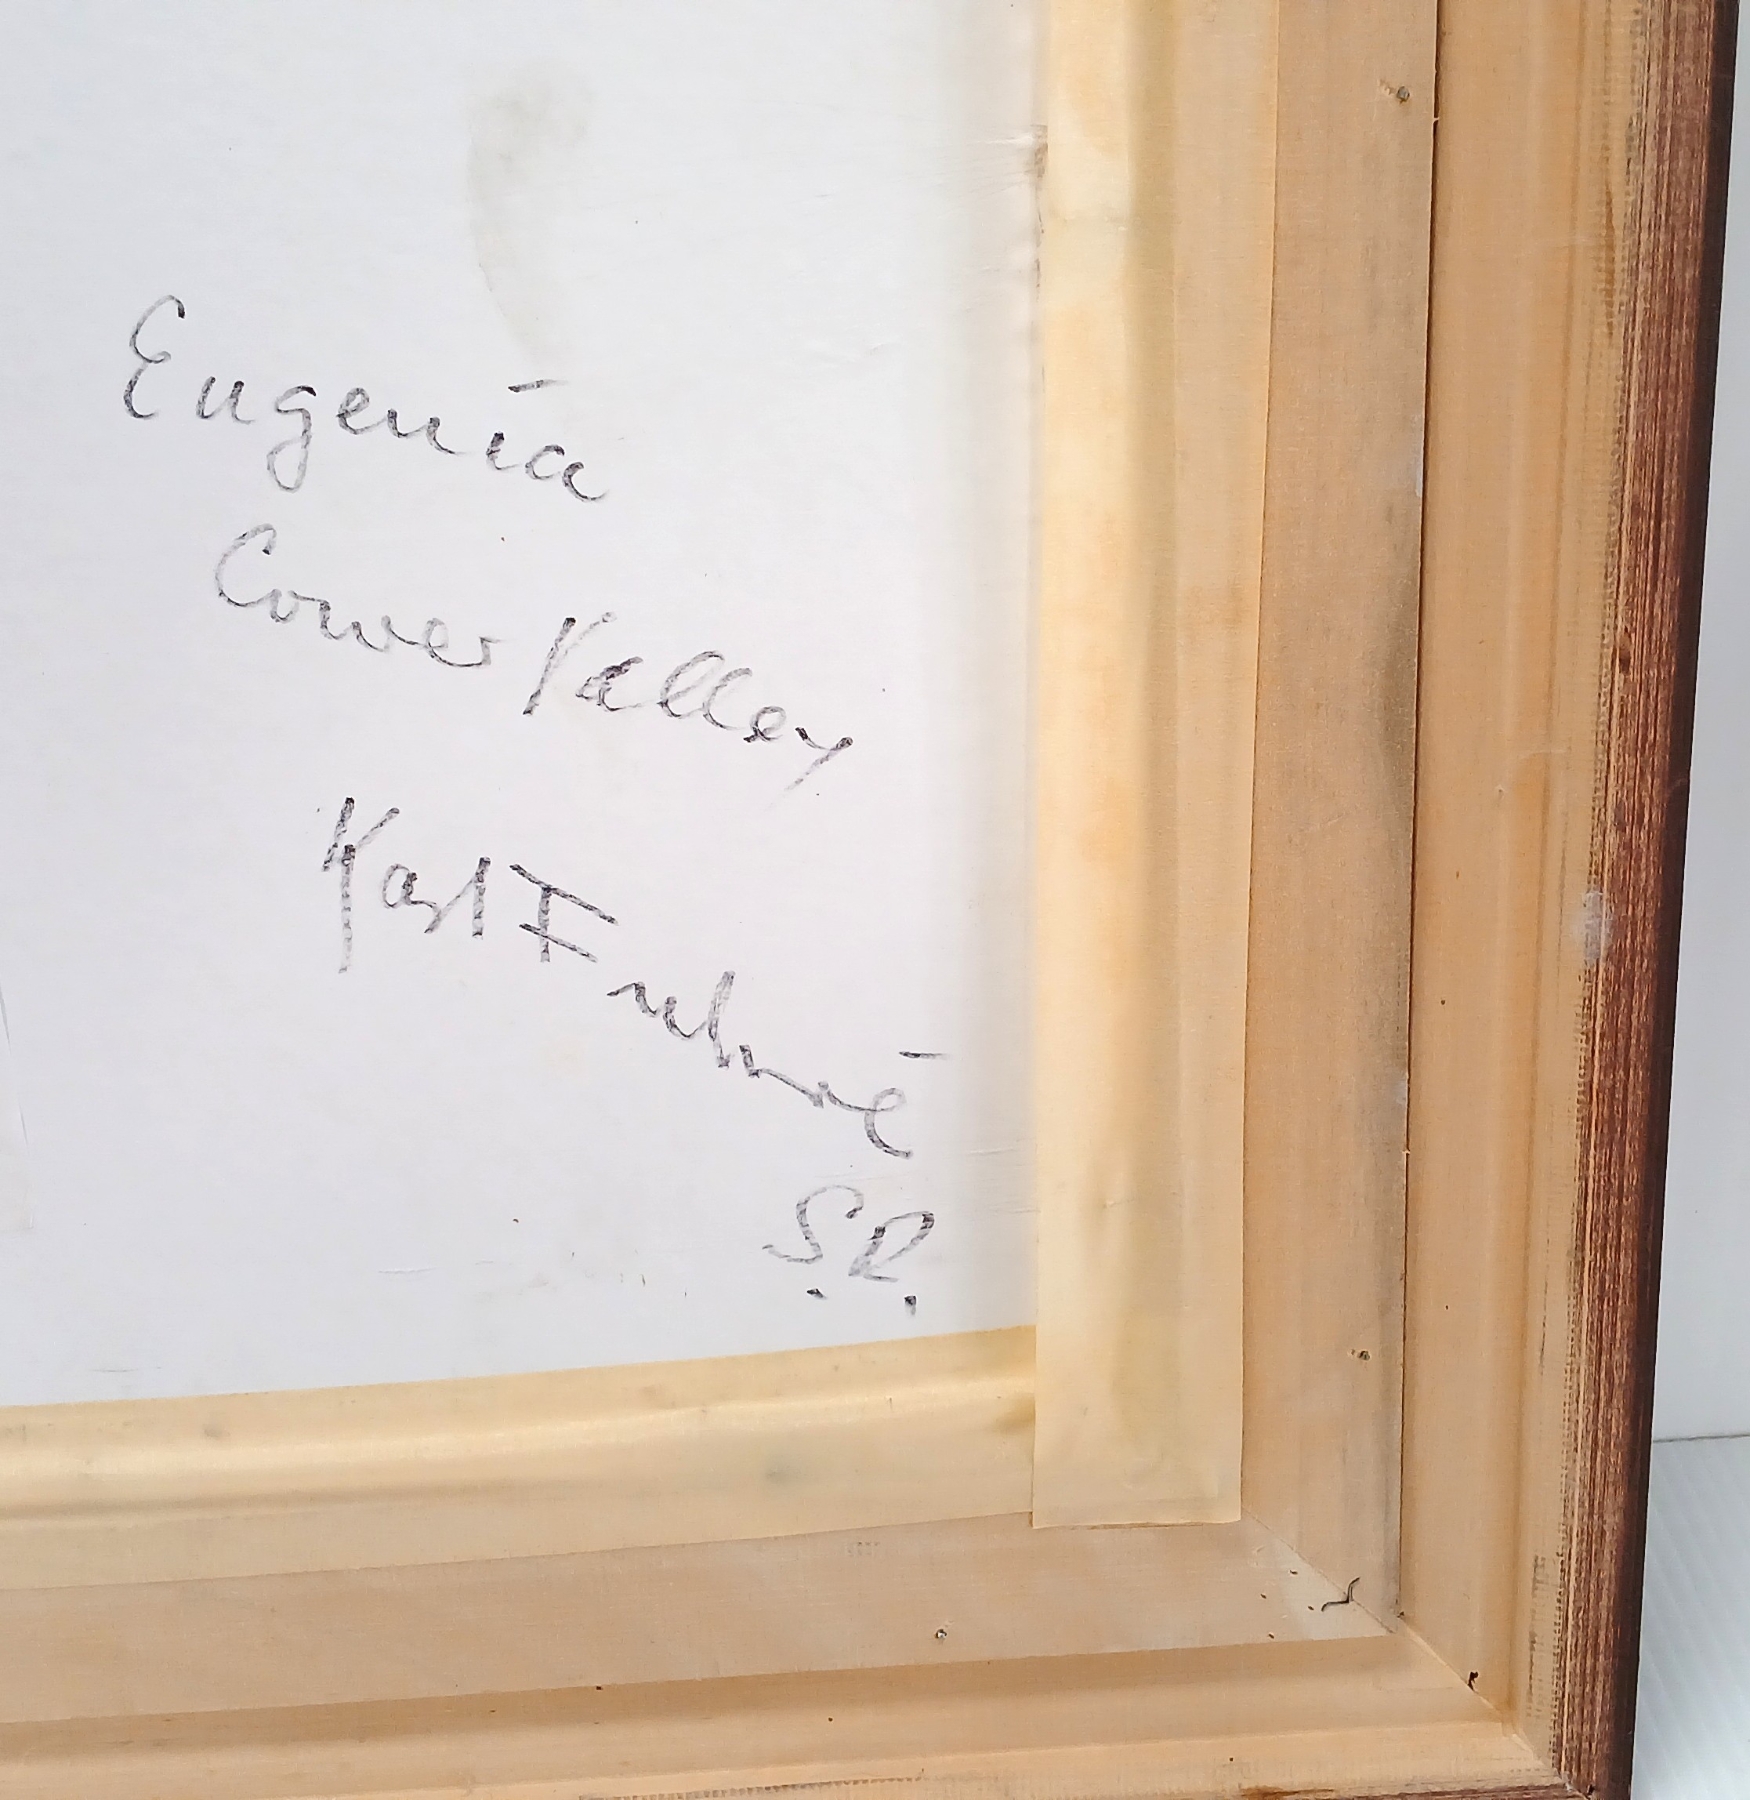 Eugenia
Cower Valley
Karl Fuhrné
S.R.